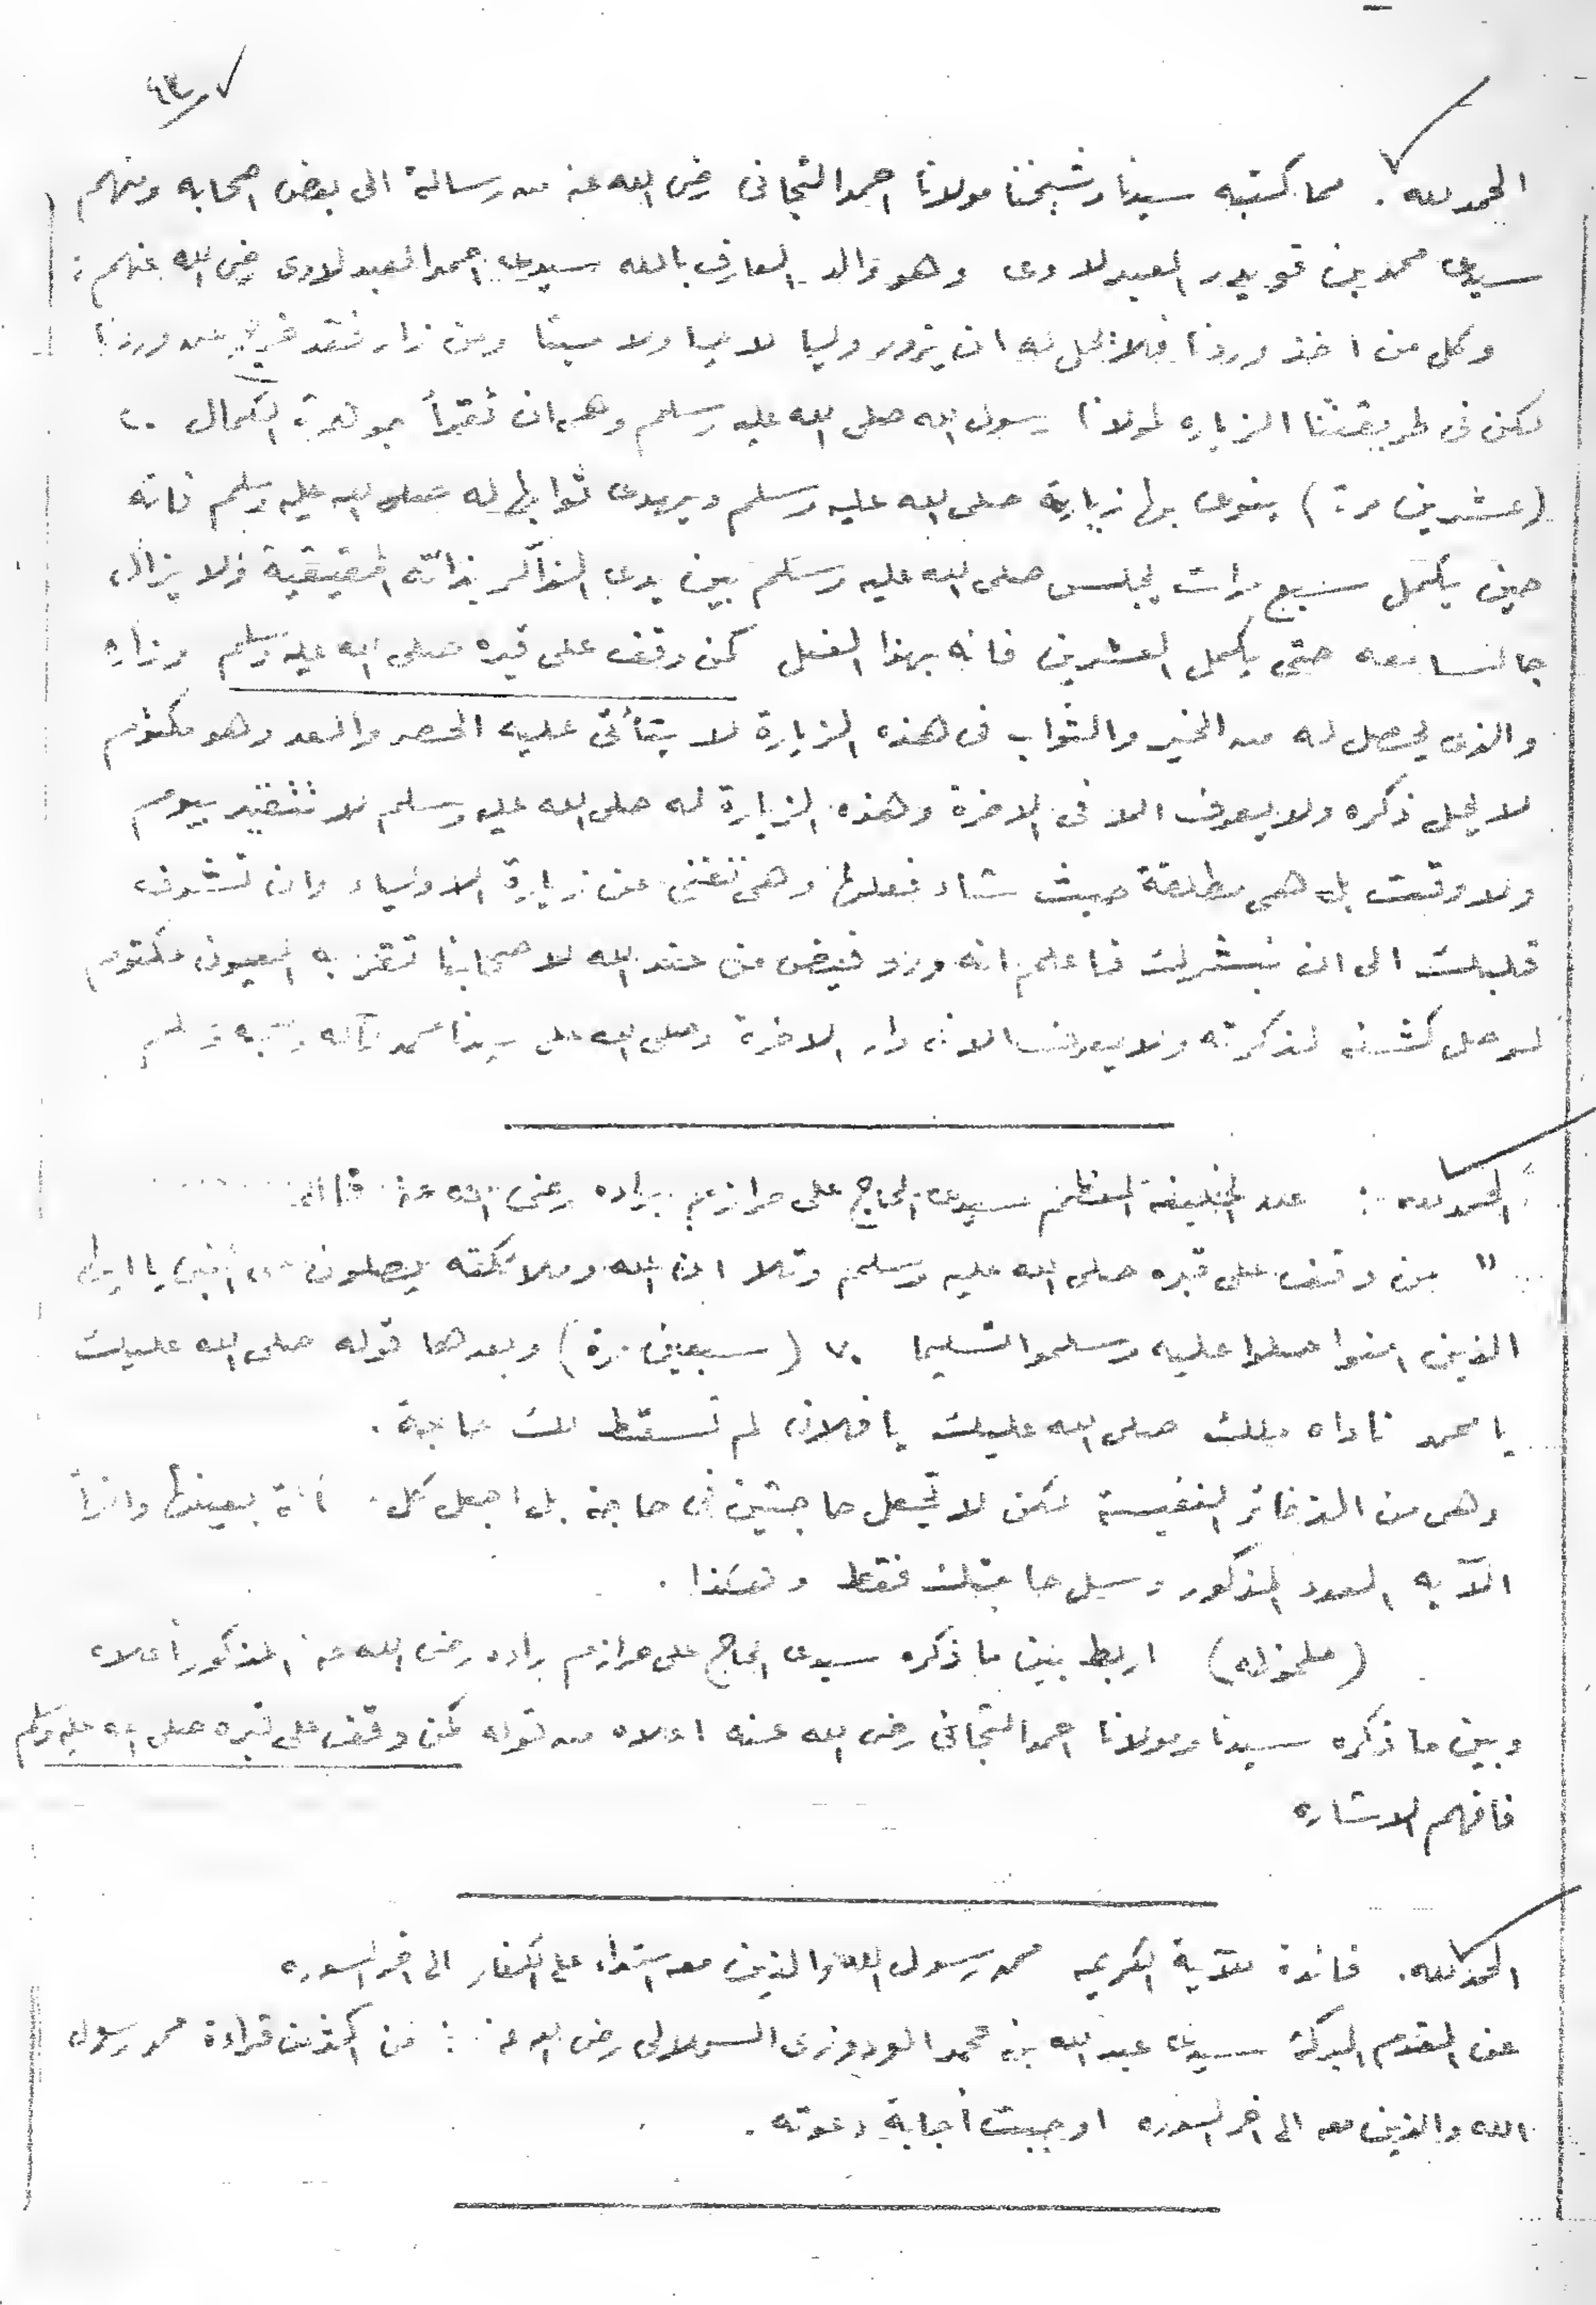 ٦٣
الحمد لله . مما كتبه سيدنا وشيخنا مولانا احمد التجانى رضى الله عنه من رسالة الى بعض اصحابه ومنهم
سيدى محمد بن قويدر العبدلاوى وهو والد العارف بالله سيدى احمد العبدلاوى رضى الله عنهم :
وكل من اخذ وردنا فلا يحل له ان يزور وليا لا حيا ولا ميتا ومن زار فقد خرج عن وردنا
لكن فى طريقتنا الزياره لمولانا رسول الله صلى الله عليه وسلم وهى ان تقرأ جوهرة الكمال ٢٠
(عشرين مرة) ينوى بها زيارة صلى الله عليه وسلم ويهدى ثوابها له صلى الله عليه وسلم فانه
حين يكمل سبع مرات يجلس صلى الله عليه وسلم بين يدى الذاكر بذاته الحقيقية ولا يزال
جالسا معه حتى يكمل العشرين فانه بهذا الفعل كمن وقف على قبره صلى الله عليه وسلم وزاره
والذى يحصل له من الخير والثواب فى هذه الزيارة لا يتأتى عليه الحصر والعد وهو مكتوم
لا يحل ذكره ولا يعرف الا فى الاخرة وهذه الزيارة له صلى الله عليه وسلم لا تتقيد بيوم
ولا وقت بل هى مطلقة حيث شاء فعلها وهى تغنى عن زيارة الاولياء وان تشوف
قلبك الى ان نبشرك فاعلم انه ورد فيض من عند الله لاصحابنا تقر به العيون مكتوم
لو حل كشفه لذكرته ولا يعرف الا فى دار الاخرة وصلى الله على سيدنا محمد وآله وصحبه وسلم
الحمد لله : عن الخليفة المعظم سيدى الحاج على حرازم براده رضى الله عنه قال
" من وقف على قبره صلى الله عليه وسلم وتلا ان الله وملائكته يصلون على النبى يا ايها
الذين امنوا صلوا عليه وسلموا تسليما ٧٠ (سبعين مرة) وبعدها قوله صلى الله عليك
يا محمد ناداه ملك صلى الله عليك يا فلان لم تسقط لك حاجة .
وهى من الذخائر النفيسة لكن لا تجعل حاجتين فى حاجة بل اجعل كل بعينها واقرأ
الآيه العدد المذكور وسل حاجتك فقط وهكذا .
(ملحوظه) اربط بين ما ذكره سيدى الحاج على حرازم براده رضى الله عنه المذكور أعلاه
وبين ما ذكره سيدنا ومولانا احمد التجانى رضى الله عنه اعلاه من قوله كمن وقف على قبره صلى الله عليه وسلم
فافهم الاشاره
الحمد لله . فائدة للآية الكريمه محمد رسول الله والذين معه اشداء على الكفار الى اخر السوره
عن المقدم البركة سيدى عبد الله بن محمد الودوزى السملالى رضى الله عنه : من اكثر من قراءة محمد رسول
الله والذين معه الى اخر السوره اوجبت أجابة دعوته .